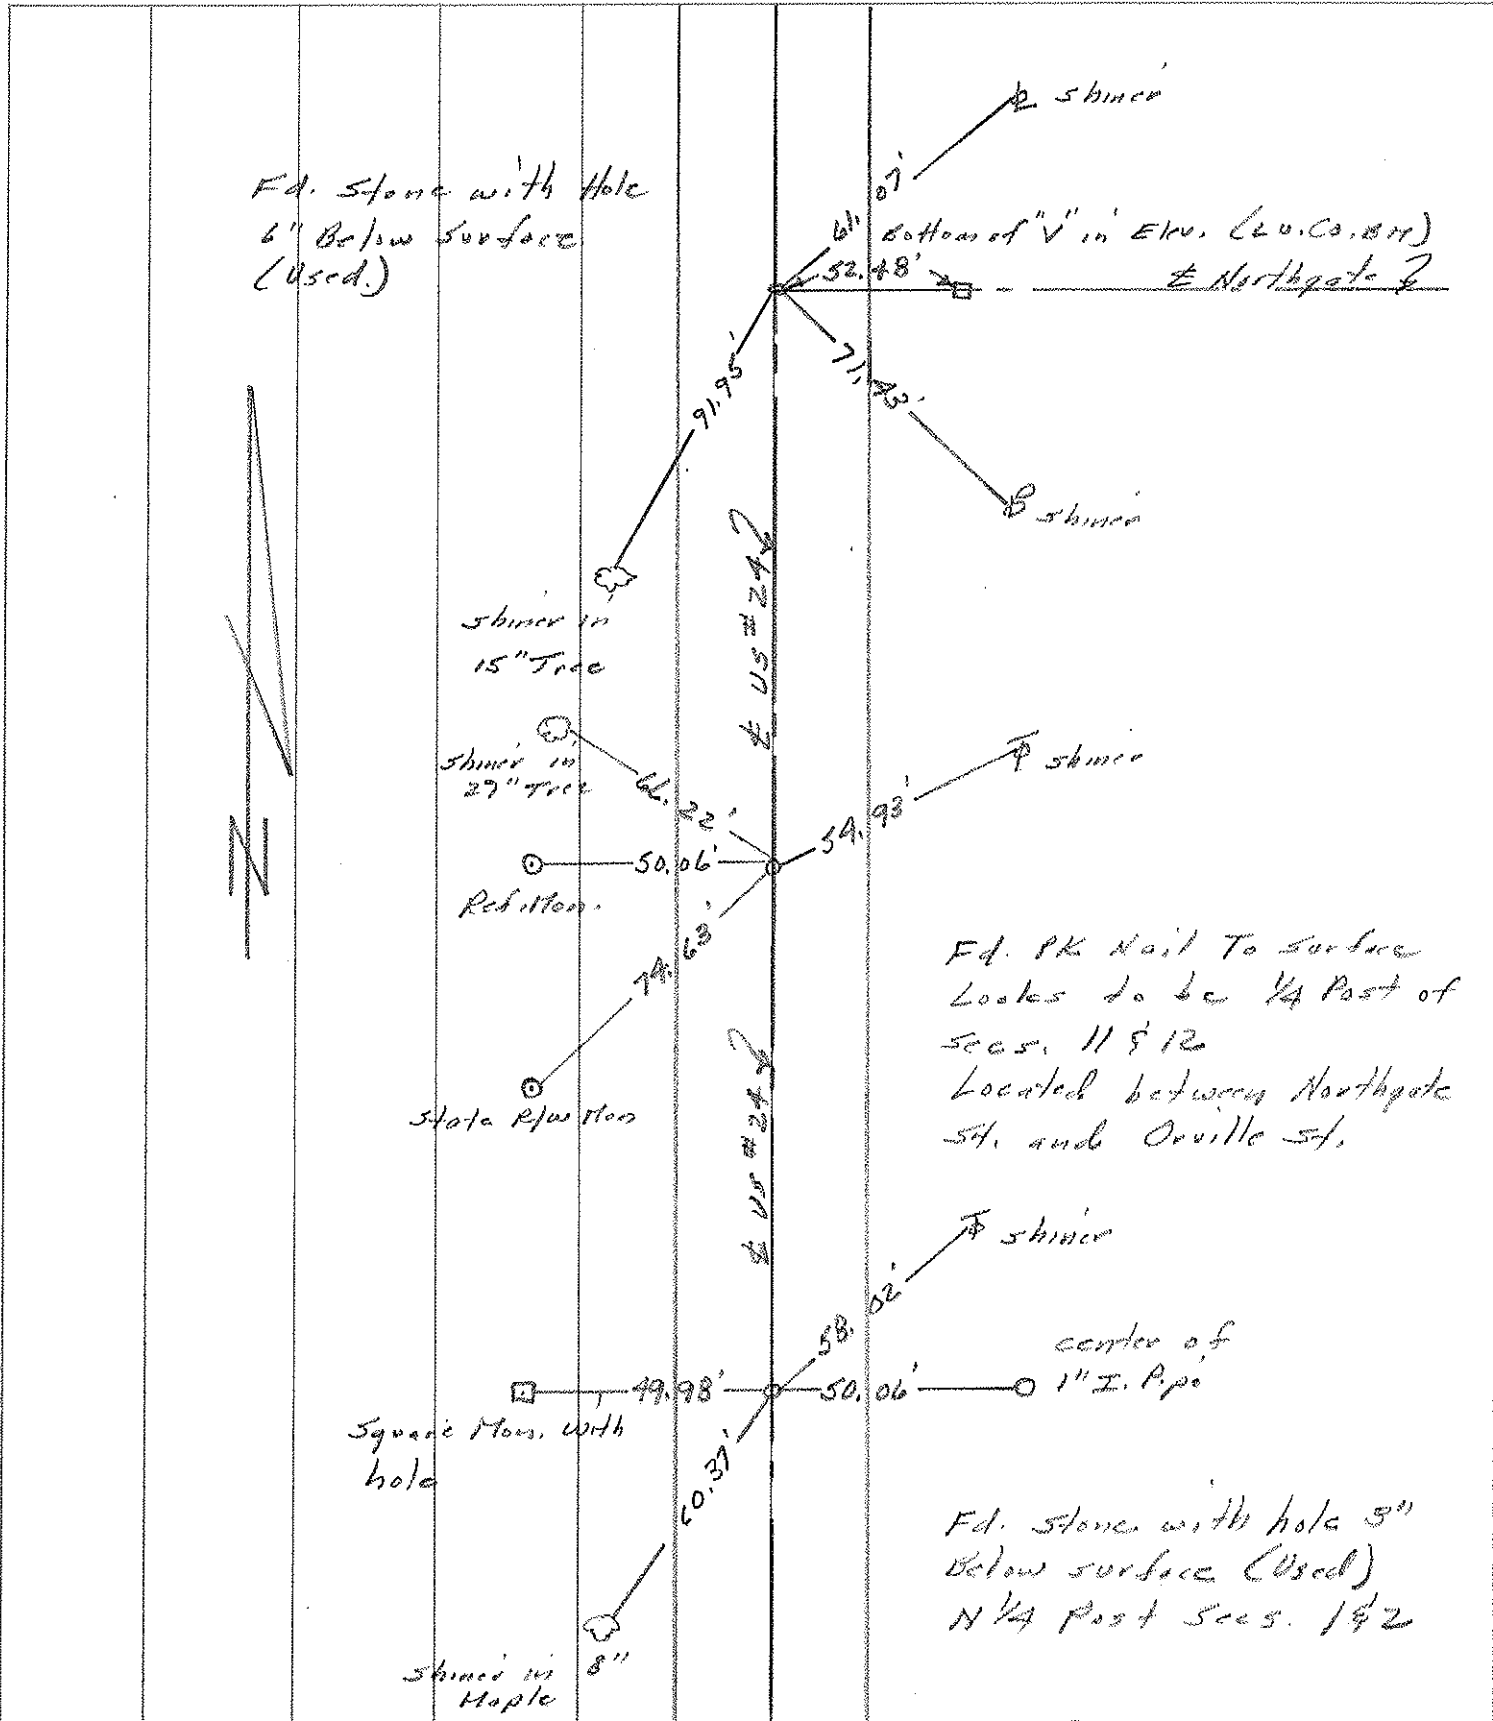 shiner
Fd. Stone with Hole
6" Below Surface
(Used.)
61.07'
Bottom of "V" in Elev. (Lu.Co.BM)
52.48'
℄ Northgate
91.95'
71.43'
shiner
shiner in
15" Tree
℄ US #24
shiner in
27" Tree
shiner
22'
54.93'
50.06'
Ref. Mon.
74.63'
Fd. PK Nail To surface
Looks to be 1/4 Post of
secs. 11 & 12
Located between Northgate
St. and Orville St.
State R/W Mon
℄ US #24
N
shiner
58.02'
center of
1" I. Pipe
49.98'
50.06'
Square Mon. with
hole
60.37'
Fd. stone with hole
Below surface (Used)
N 1/4 Post Secs. 1 & 2
shiner in 8"
Maple